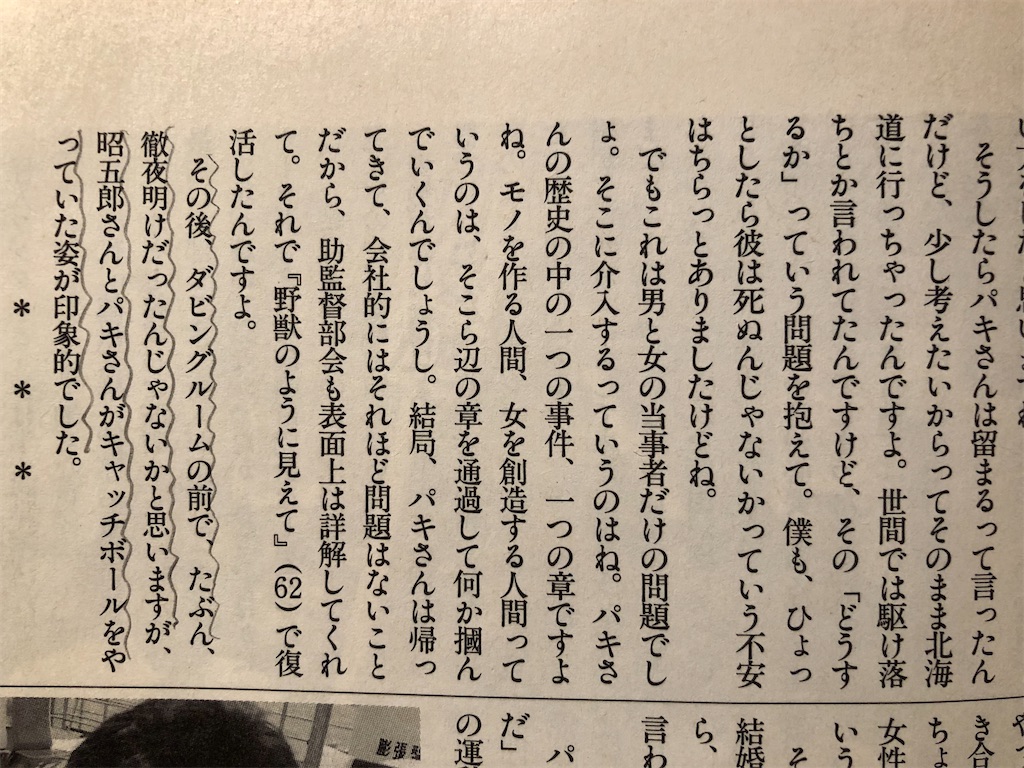 そうしたらパキさんは留まるって言ったん
だけど、少し考えたいからってそのまま北海
道に行っちゃったんですよ。世間では駆け落
ちとか言われてたんですけど、その「どうす
るか」っていう問題を抱えて。僕も、ひょっ
としたら彼は死ぬんじゃないかっていう不安
はちらっとありましたけどね。
でもこれは男と女の当事者だけの問題でし
ょ。そこに介入するっていうのはね。パキさ
んの歴史の中の一つの事件、一つの章ですよ
ね。モノを作る人間、女を創造する人間って
いうのは、そこら辺の章を通過して何か摑ん
でいくんでしょうし。結局、パキさんは帰っ
てきて、会社的にはそれほど問題はないこと
だから、助監督部会も表面上は詳解してくれ
て。それで『野獣のように見えて』(62)で復
活したんですよ。
その後、ダビングルームの前で、たぶん、
徹夜明けだったんじゃないかと思いますが、
昭五郎さんとパキさんがキャッチボールをや
っていた姿が印象的でした。
＊　＊　＊
き合
ちょ
女性
いう
そ
結婚
ら、
言わ
パ
だ」
の運
膨張